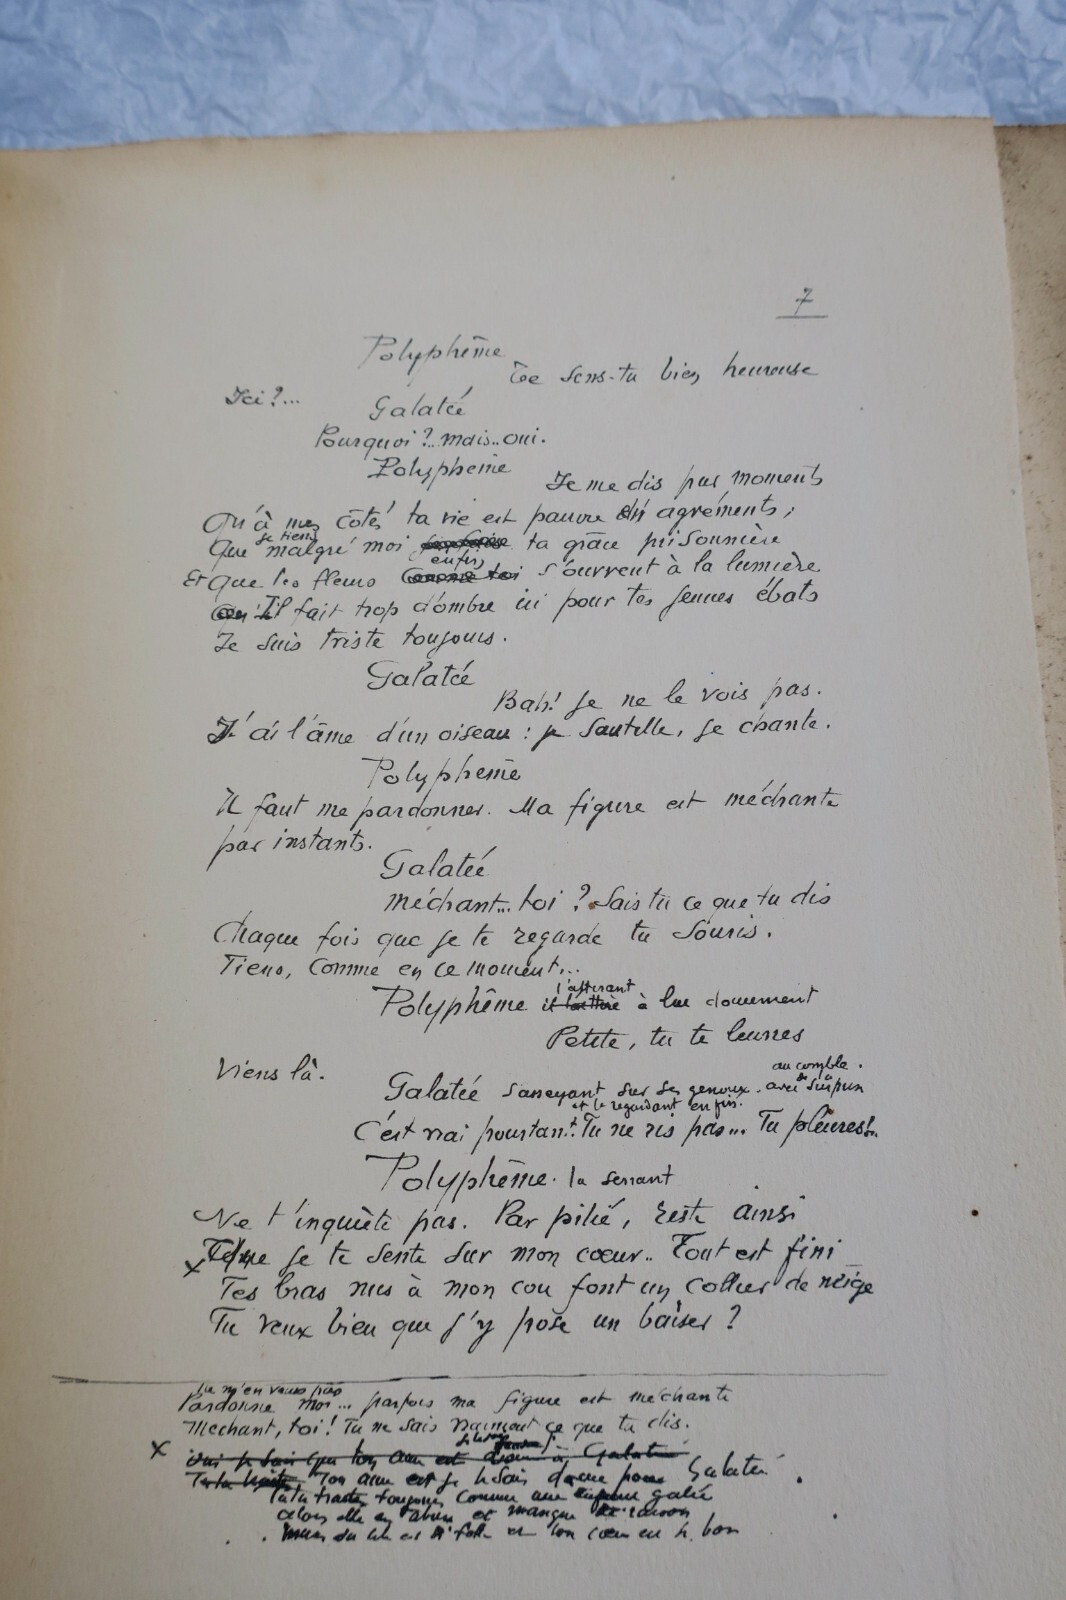 7
Polyphême
Te sens-tu bien heureuse
Ici ?...
Galatée
Pourquoi ?.. mais.. oui.
Polypheme
Je me dis par moments
Qu'à mes côtés ta vie est pauvre d'agréments ;
je tiens
Que malgré moi ta grâce prisonnière
enfin
Et Que les fleurs s'ouvrent à la lumière
Il fait trop d'ombre ici pour tes jeunes ébats
Je suis triste toujours.
Galatée
Bah! je ne le vois pas.
J'ai l'âme d'un oiseau : je sautelle, je chante.
Polypheme
Il faut me pardonner. Ma figure est méchante
par instants.
Galatée
Méchant... toi ? Sais tu ce que tu dis
Chaque fois que je te regarde tu souris.
Tiens, comme en ce moment...
l'attirant
Polyphême il l'attire à lui doucement
Petite, tu te leurres
Viens là.
au comble
Galatée s'asseyant sur ses genoux. avec surprise
et le regardant enfin.
C'est vrai pourtant. Tu ne ris pas... Tu pleures!..
Polyphême. la serrant
Ne t'inquiète pas. Par pitié, reste ainsi
x Que je te sente sur mon cœur.. Tout est fini
Tes bras nus à mon cou font un collier de neige
Tu veux bien que j'y pose un baiser ?
ne m'en veux pas
Pardonne moi... parfois ma figure est méchante
Mechant, toi ! Tu ne sais vraiment ce que tu dis.
x
Ton ame est je le sais douce pour Galatée.
Tu la traites toujours comme une galie
alors elle en abuse et manque de raison
Mais du lit et folle et ton cœur est si bon